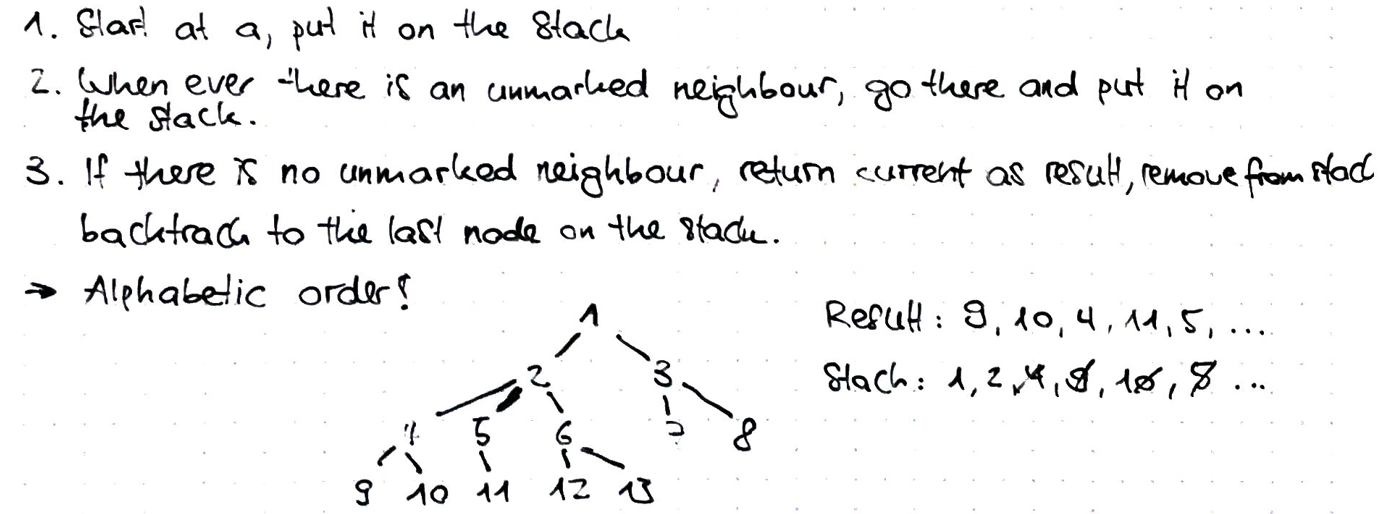 1. Start at a, put it on the stack
2. When ever there is an unmarked neighbour, go there and put it on
the stack.
3. If there is no unmarked neighbour, return current as result, remove from stac
backtrack to the last node on the stack.
→ Alphabetic order!
1
Result: 9, 10, 4, 11, 5, ....
2 3
Stack: 1, 2, 4, 9, 10, 5 ...
4 5 6 7 8
9 10 11 12 13